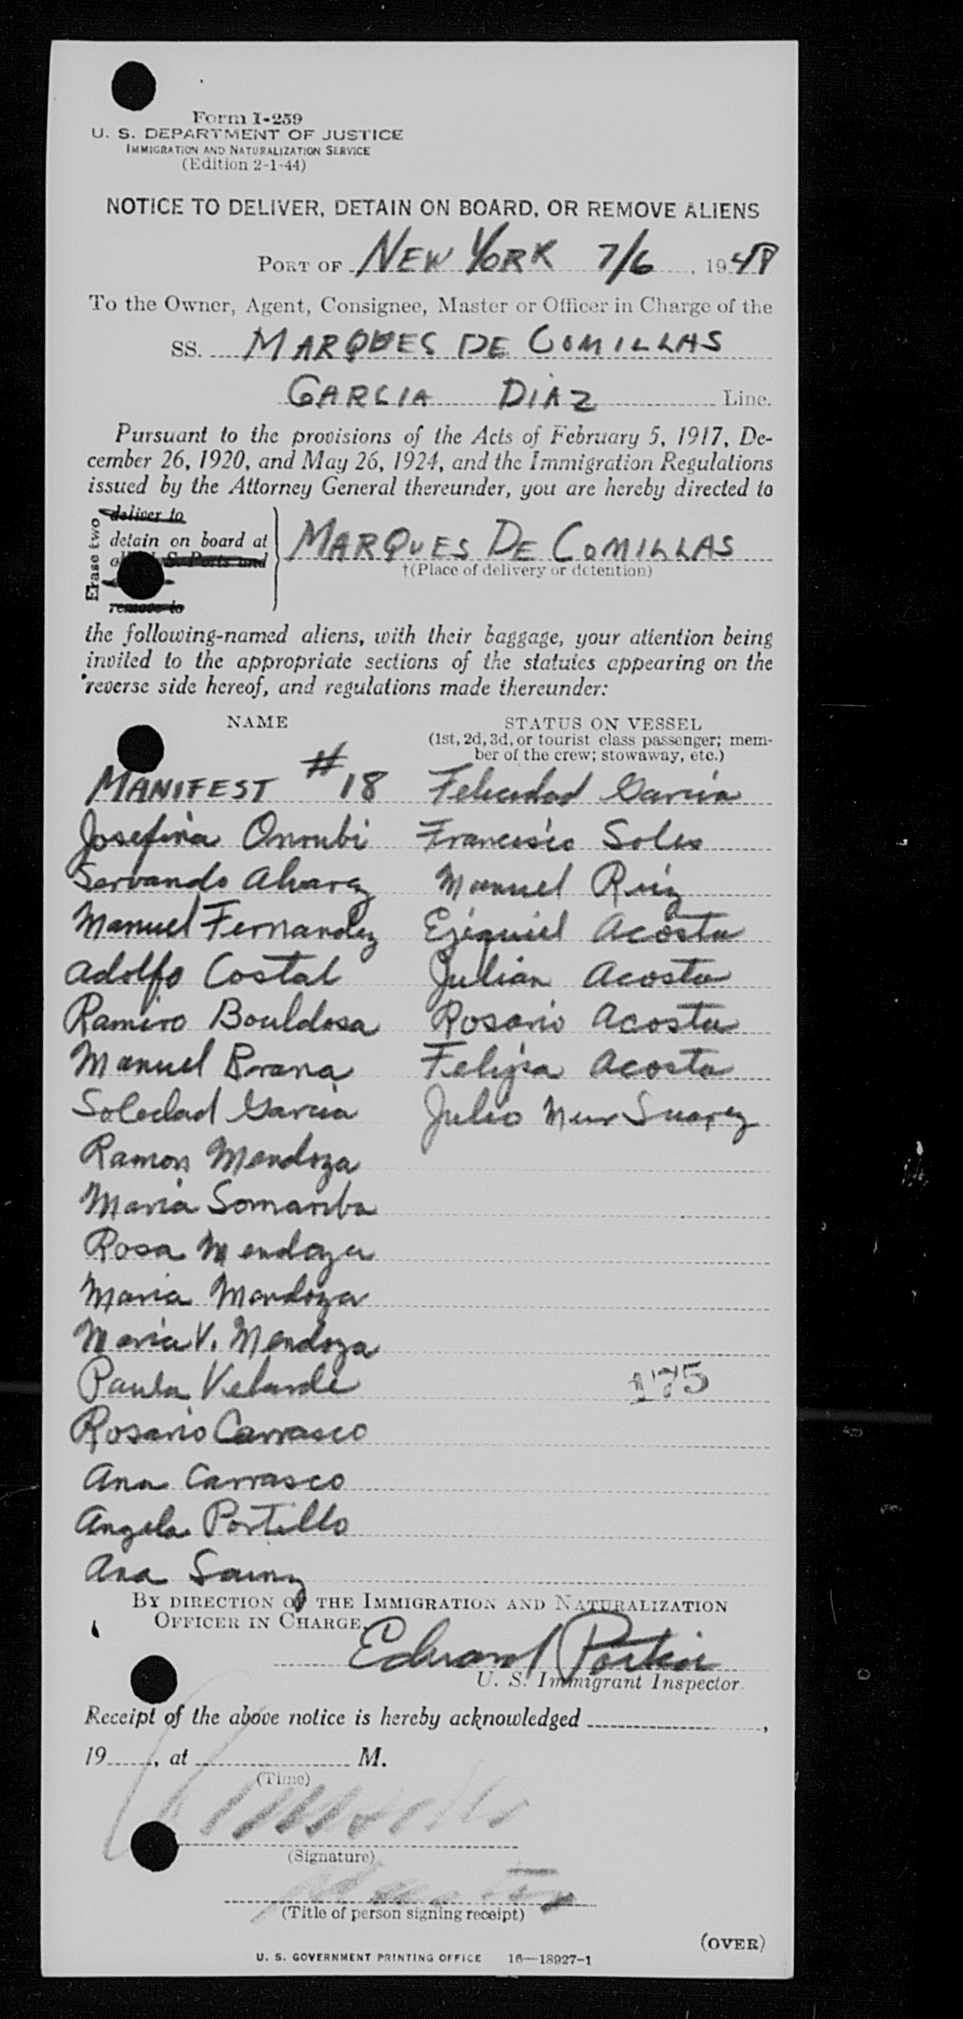 Form I-259
U. S. DEPARTMENT OF JUSTICE
IMMIGRATION AND NATURALIZATION SERVICE
(Edition 2-1-44)
NOTICE TO DELIVER, DETAIN ON BOARD, OR REMOVE ALIENS
PORT OF NEW YORK 7/6, 1948
To the Owner, Agent, Consignee, Master or Officer in Charge of the
SS. MARQUES DE COMILLAS
GARCIA DIAZ Line.
Pursuant to the provisions of the Acts of February 5, 1917, De-
cember 26, 1920, and May 26, 1924, and the Immigration Regulations
issued by the Attorney General thereunder, you are hereby directed to
Erase two
deliver to
detain on board at
S. Ports and
remove to
MARQUES DE COMILLAS
†(Place of delivery or detention)
the following-named aliens, with their baggage, your attention being
invited to the appropriate sections of the statutes appearing on the
reverse side hereof, and regulations made thereunder:
NAME STATUS ON VESSEL
(1st, 2d, 3d, or tourist class passenger; mem-
ber of the crew; stowaway, etc.)
MANIFEST #18 Felicidad Garcia
Josefina Francisco Soles
Servando Alvarez Manuel Ruiz
Manuel Fernandez Ezequiel Acosta
Adolfo Costal Julian Acosta
Ramiro Bouldosa Rosario Acosta
Manuel Brana Felipa Acosta
Soledad Garcia Julio Suarez
Ramon Mendoza
Maria Somarriba
Rosa Mendoza
Maria Mendoza
Maria V. Mendoza
Paula Velarde 175
Rosario Carrasco
Ana Carrasco
Angela Portillo
Ana Sainz
BY DIRECTION OF THE IMMIGRATION AND NATURALIZATION
OFFICER IN CHARGE.
Edward
U. S. Immigrant Inspector.
Receipt of the above notice is hereby acknowledged ,
19 , at M.
(Time)
(Signature)
Master
(Title of person signing receipt)
(OVER)
U. S. GOVERNMENT PRINTING OFFICE 16—18927-1